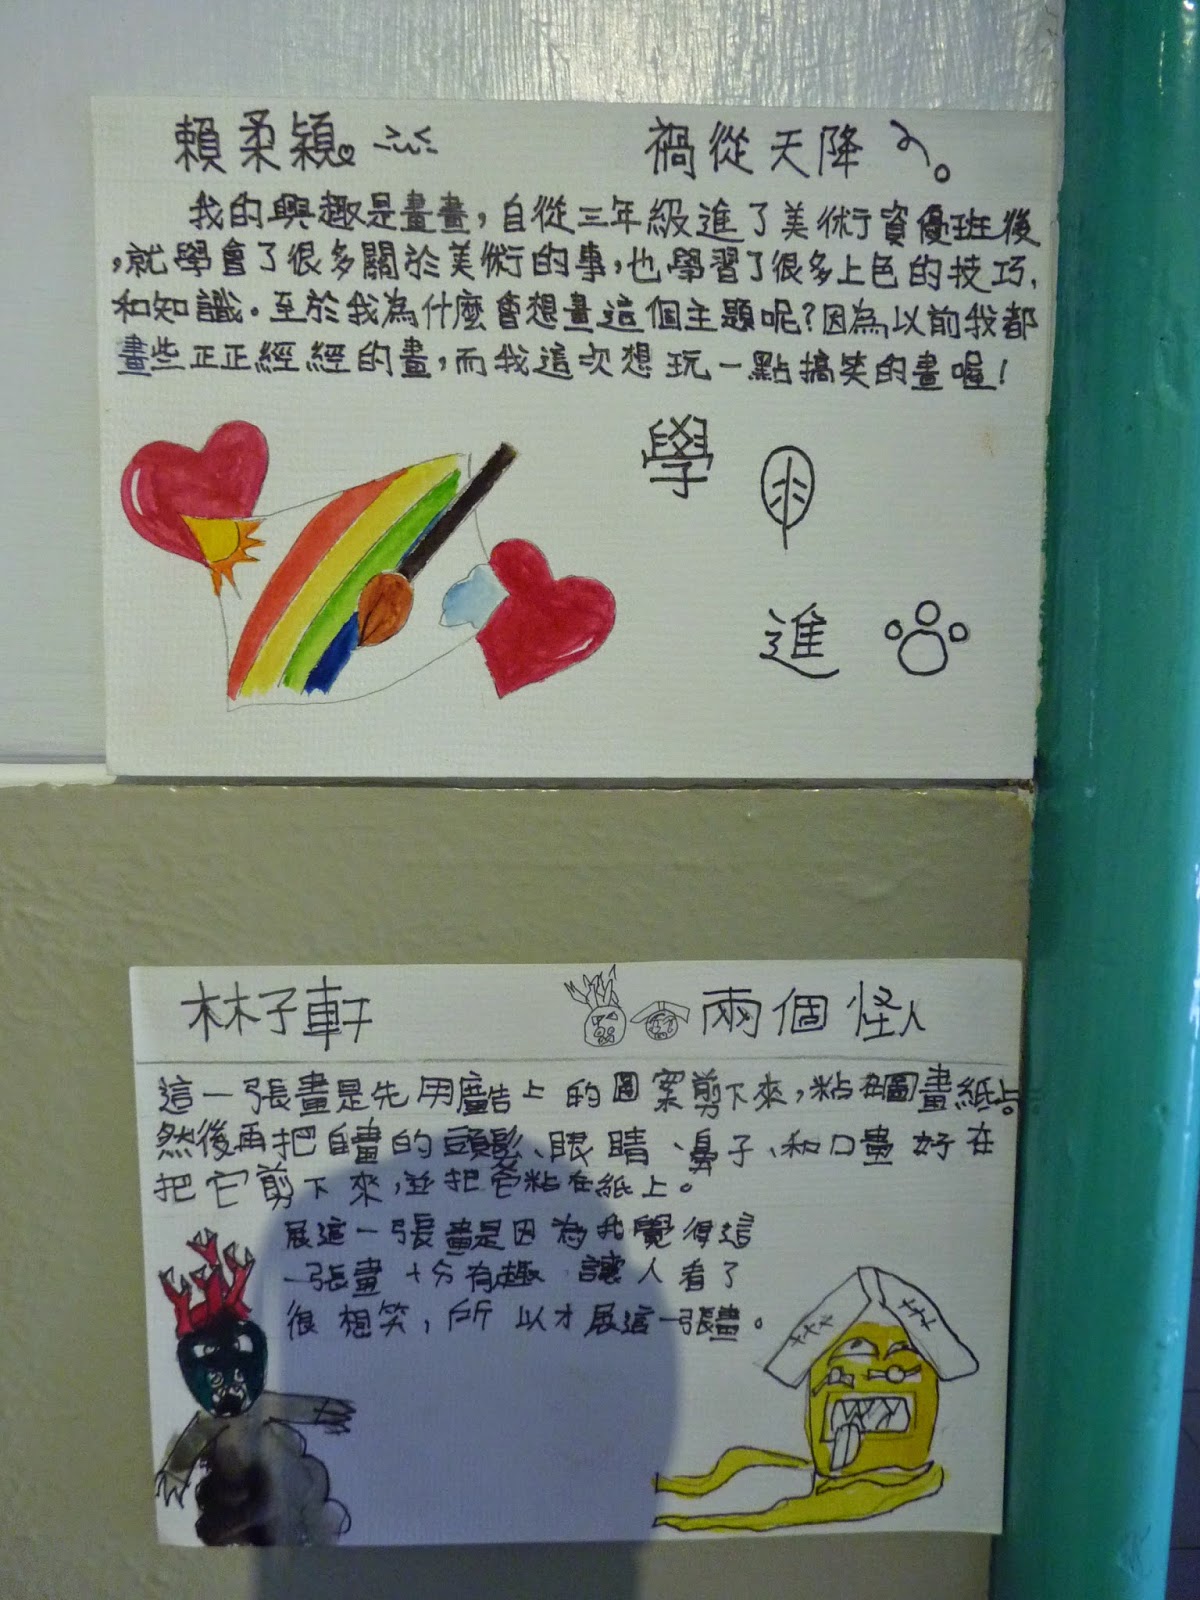 賴柔穎 禍從天降
我的興趣是畫畫，自從三年級進了美術資優班後
，就學會了很多關於美術的事，也學習了很多上色的技巧、
和知識。至於我為什麼會想畫這個主題呢?因為以前我都
畫些正正經經的畫，而我這次想玩一點搞笑的畫喔!
學
進
林子軒 兩個怪人
這一張畫是先用廣告上的圖案剪下來，粘在圖畫紙上。
然後再把自畫的頭髮、眼睛、鼻子、和口畫好在
把它剪下來，並把它粘在紙上。
展這一張畫是因為我覺得這
一張畫十分有趣 讓人看了
很想笑，所以才展這一張畫。